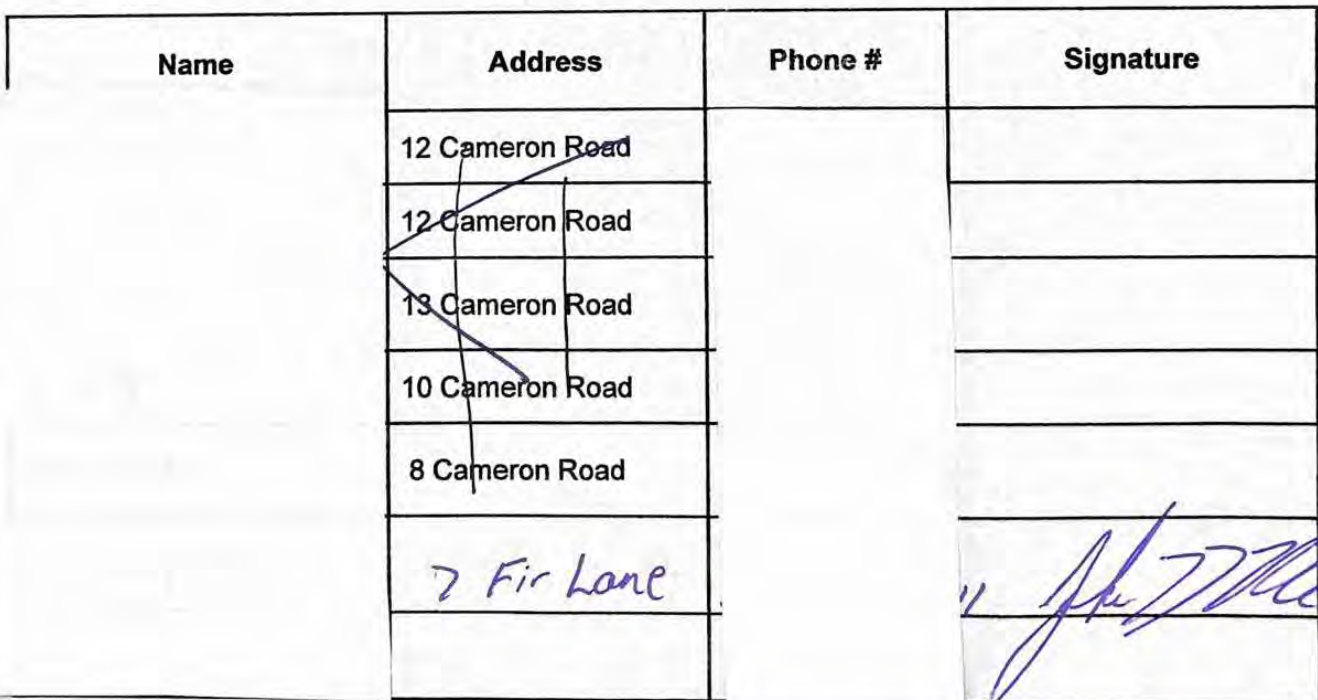 Name Address Phone # Signature
12 Cameron Road
12 Cameron Road
13 Cameron Road
10 Cameron Road
8 Cameron Road
7 Fir Lane